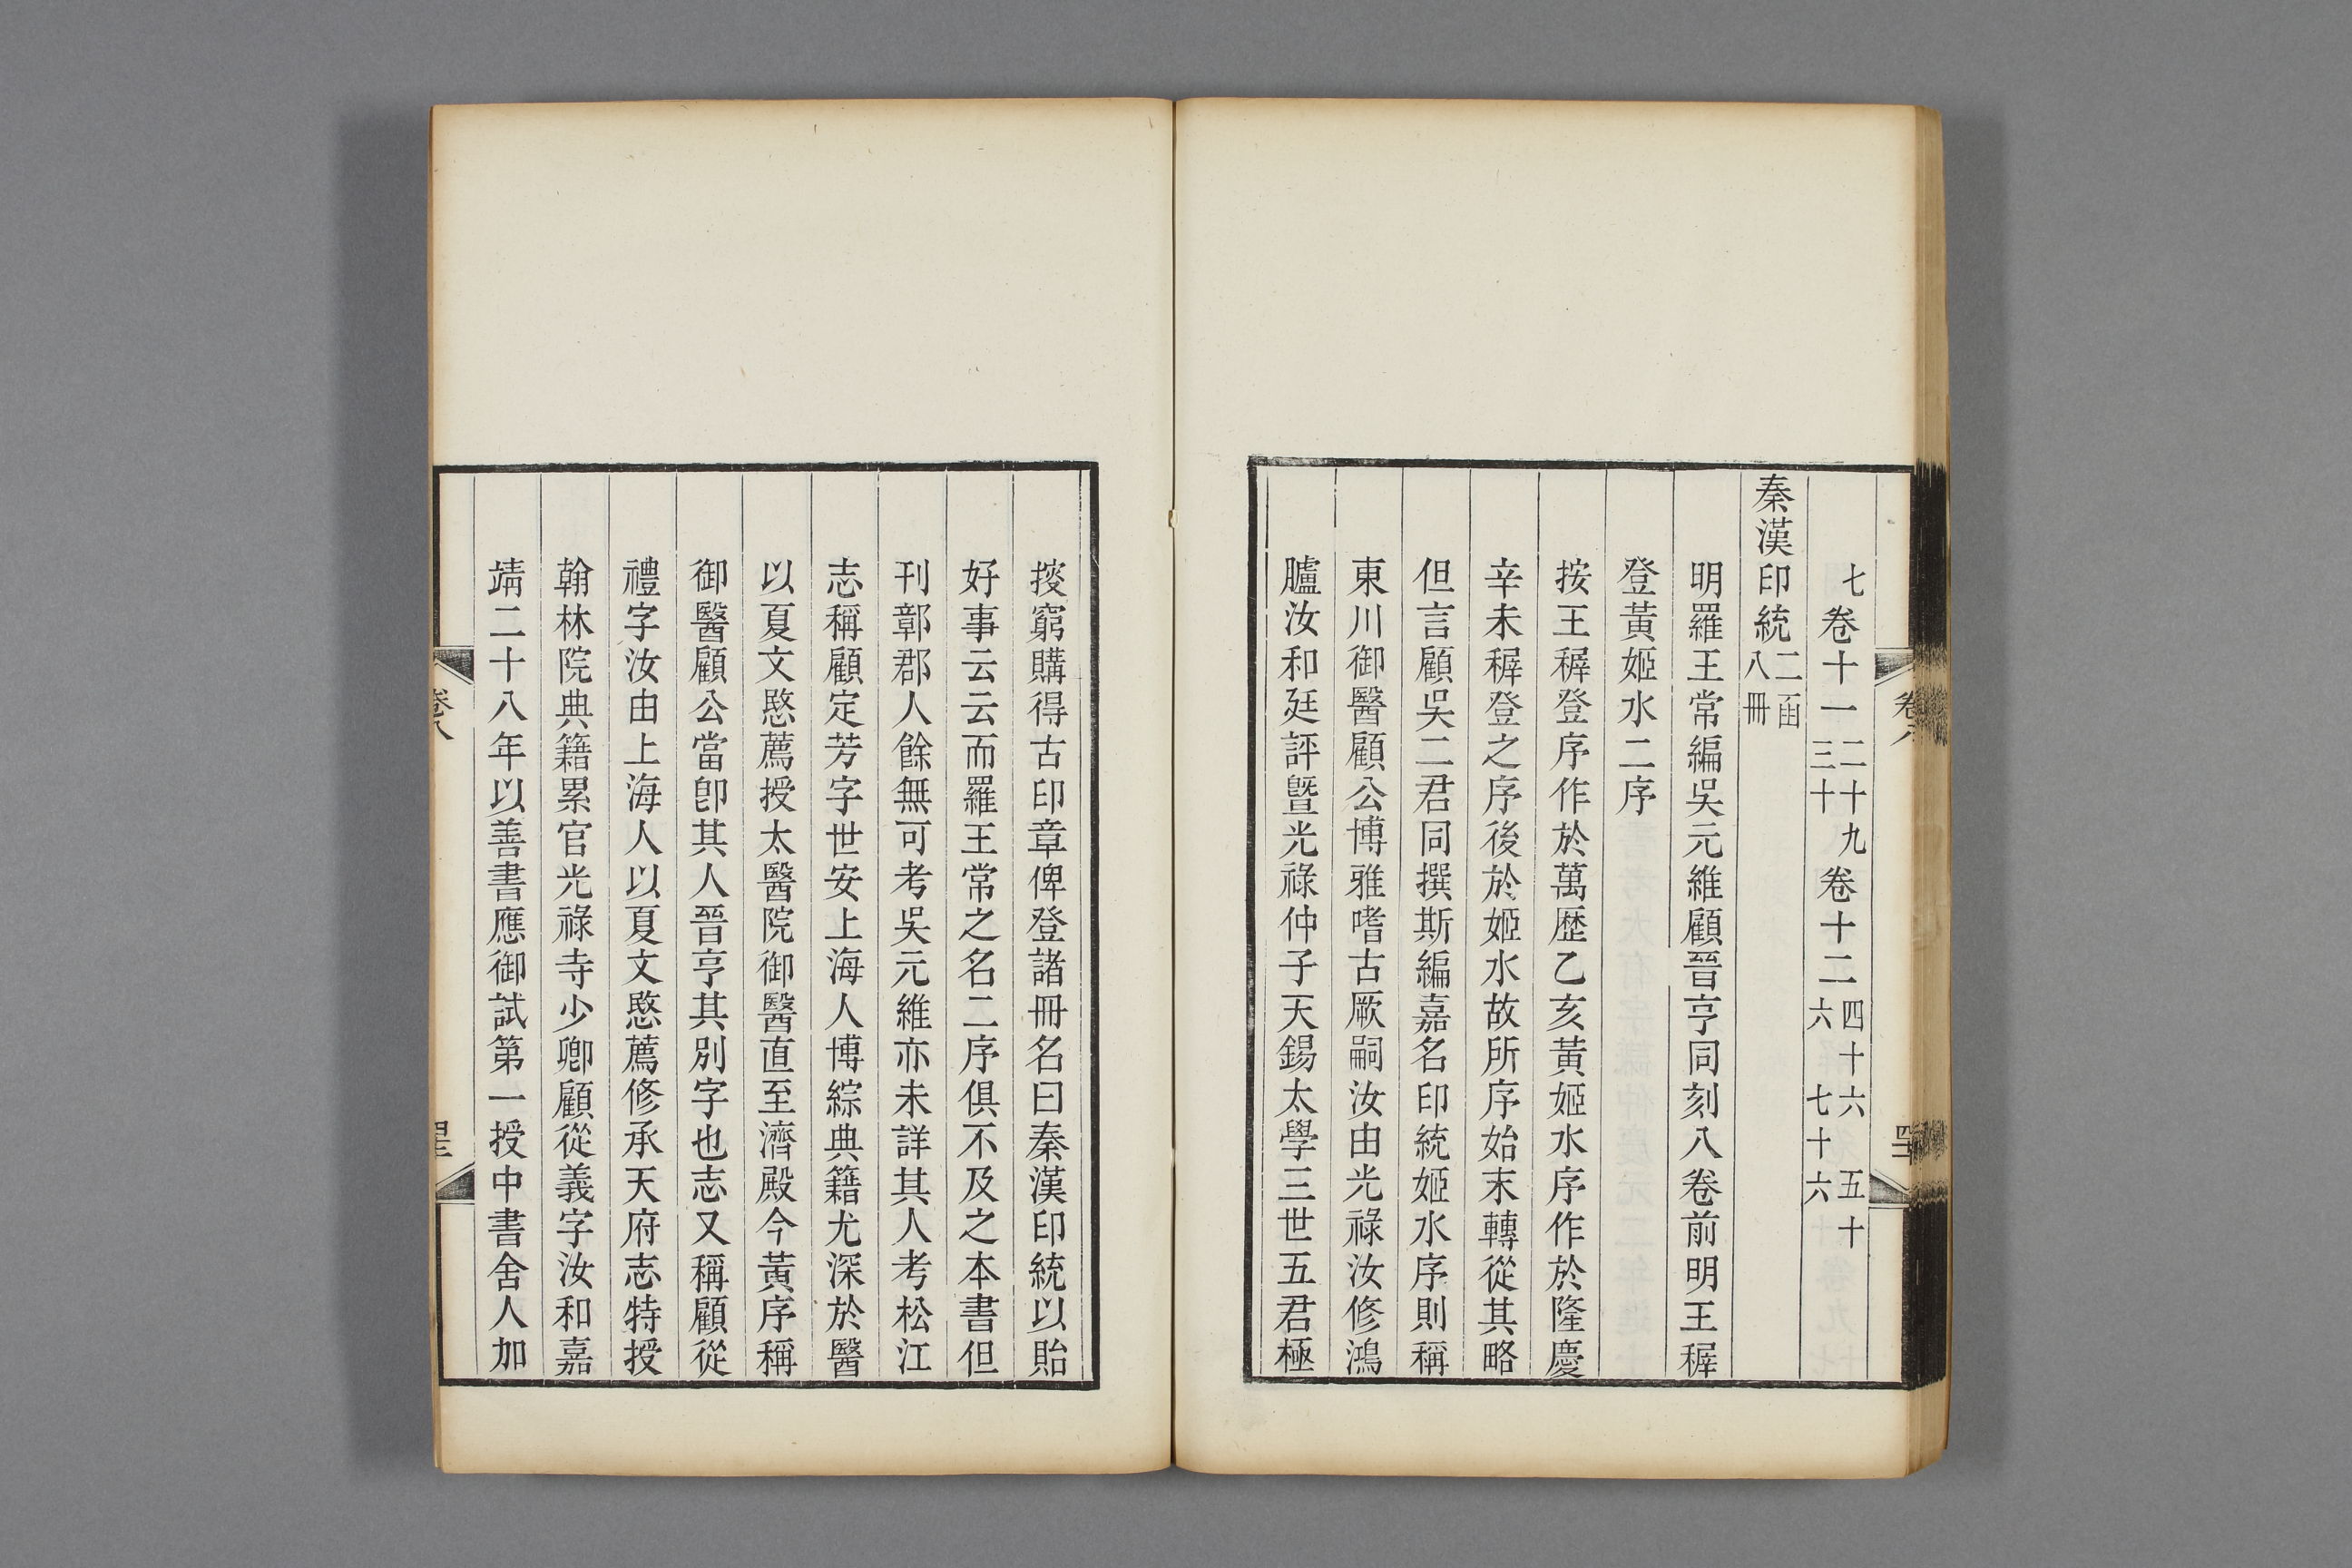 七卷十一二十九三十卷十二四十六五十六七十六
秦漢印統二函八冊
明羅王常編吳元維顧晉亨同刻八卷前明王穉
登黃姬水二序
按王穉登序作於萬歷乙亥黃姬水序作於隆慶
辛未穉登之序後於姬水故所序始末轉從其略
但言顧吳二君同撰斯編嘉名印統姬水序則稱
東川御醫顧公博雅嗜古厥嗣汝由光祿汝修鴻
臚汝和廷評曁光祿仲子天錫太學三世五君極
搜窮購得古印章俾登諸冊名曰秦漢印統以貽
好事云云而羅王常之名二序俱不及之本書但
刊鄣郡人餘無可考吳元維亦未詳其人考松江
志稱顧定芳字世安上海人博綜典籍尤深於醫
以夏文愍薦授太醫院御醫直至濟殿今黃序稱
御醫顧公當卽其人晉亨其別字也志又稱顧從
禮字汝由上海人以夏文愍薦修承天府志特授
翰林院典籍累官光祿寺少卿顧從義字汝和嘉
靖二十八年以善書應御試第一授中書舍人加
卷八